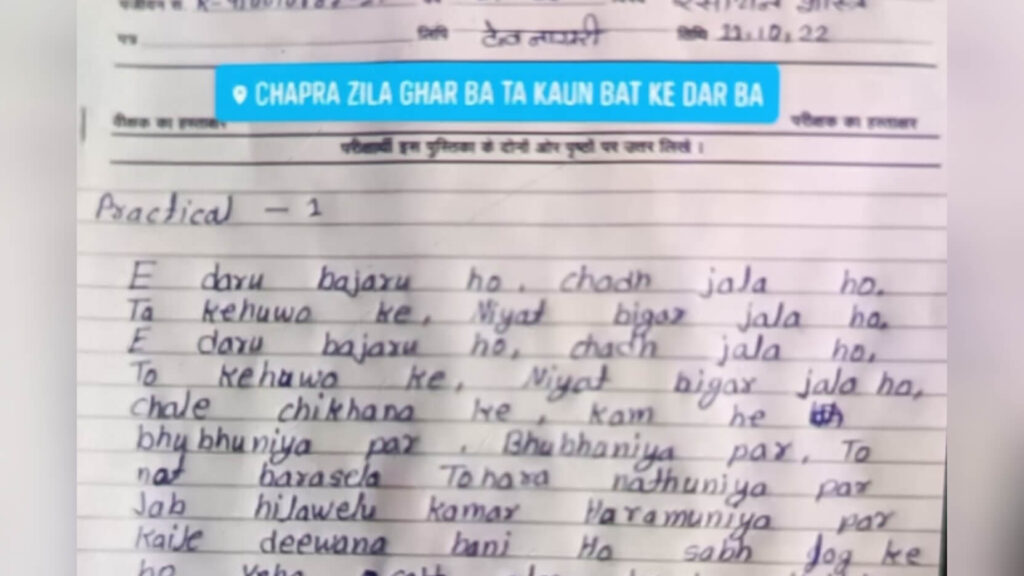 पत्र लिपि देवनागरी तिथि 11.10.22
CHAPRA ZILA GHAR BA TA KAUN BAT KE DAR BA
वीक्षक का हस्ताक्षर परीक्षक का हस्ताक्षर
परीक्षार्थी इस पुस्तिका के दोनों ओर पृष्ठों पर उत्तर लिखें।
Practical - 1
E daru bajaru ho. chadh jala ho.
Ta kehuwa ke, Niyat bigar jala ho,
E daru bajaru ho, chadh jala ho,
To kehuwo ke, Niyat bigar jala ho,
chale chikhana ke, kam he
bhubhuniya par. Bhubhaniya par, To
nat barasela Tohara nathuniya par
Jab hilawelu kamar Haramuniya par
Kaile deewana bani Ho sabh log ke
ho